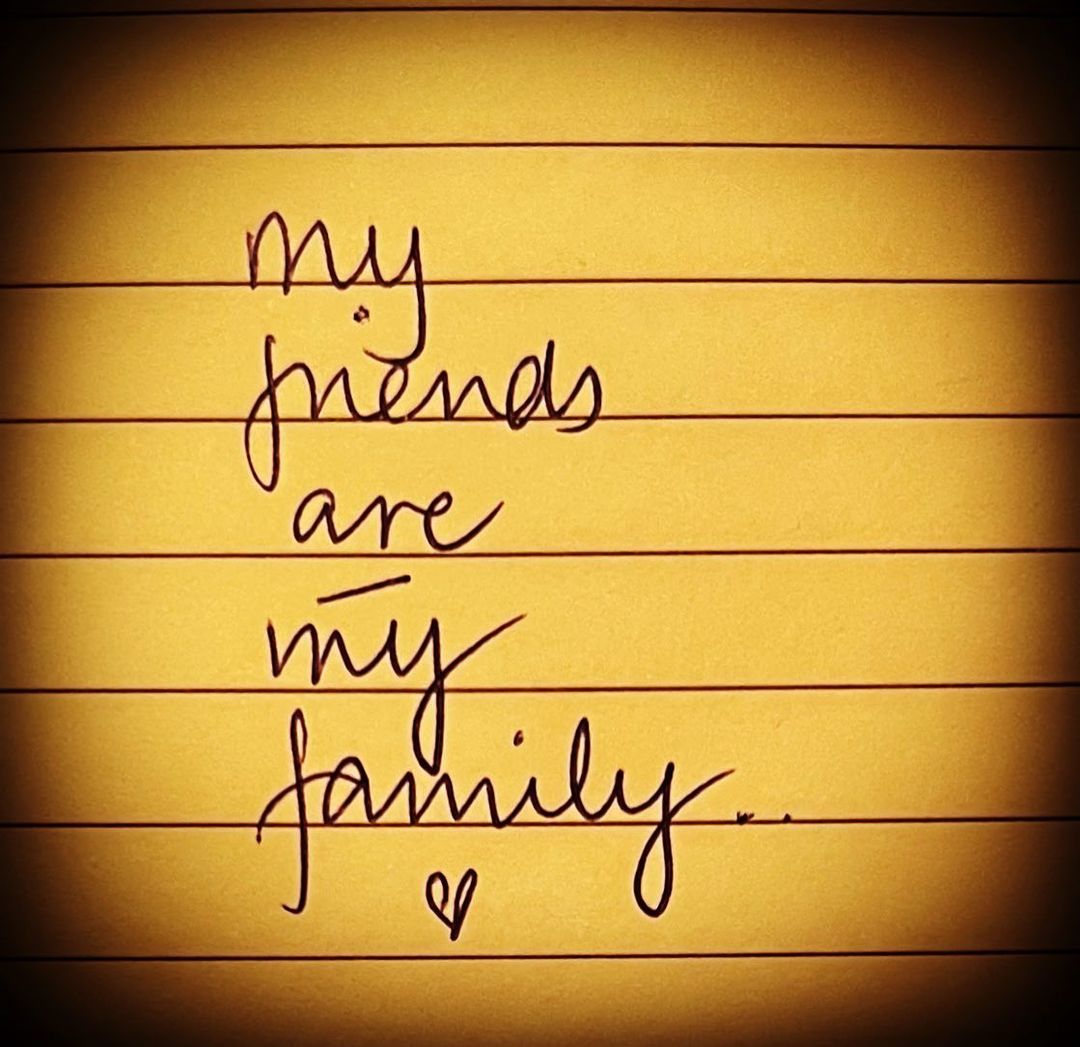 my
friends
are
my
family...